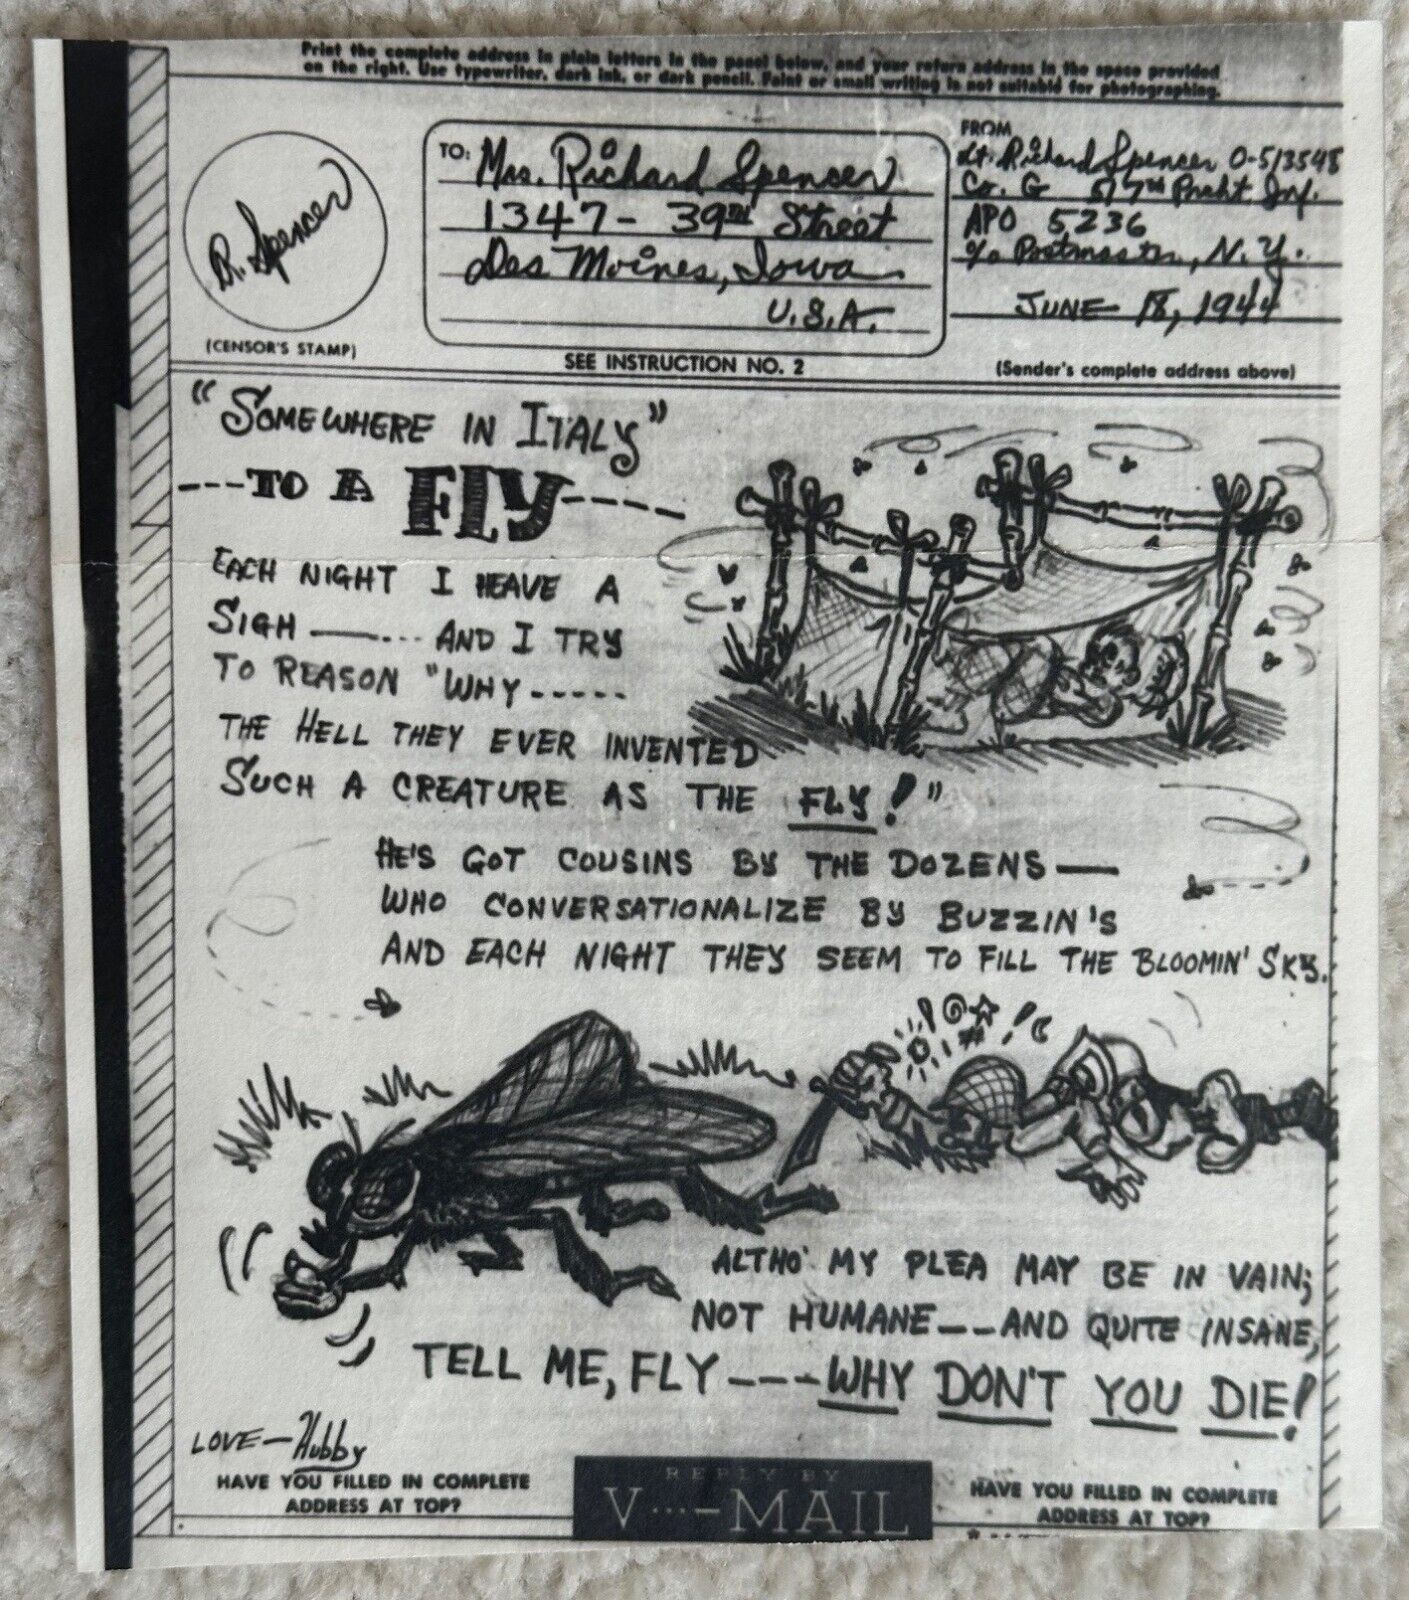 Print the complete address in plain letters in the panel below, and your return address in the space provided
on the right. Use typewriter, dark ink, or dark pencil. Faint or small writing is not suitable for photographing.
R. Spencer
(CENSOR'S STAMP)
TO: Mrs. Richard Spencer
1347 - 39TH Street
Des Moines, Iowa
U.S.A.
SEE INSTRUCTION NO. 2
FROM
Lt. Richard Spencer O-513548
Co. G 517th Pracht Inf.
APO 5236
c/o Postmaster, N.Y.
JUNE 18, 1944
(Sender's complete address above)
"SOMEWHERE IN ITALY"
---TO A FLY----
EACH NIGHT I HEAVE A
SIGH ——--- AND I TRY
TO REASON "WHY -----
THE HELL THEY EVER INVENTED
SUCH A CREATURE AS THE FLY!"
HE'S GOT COUSINS BY THE DOZENS —
WHO CONVERSATIONALIZE BY BUZZIN'S
AND EACH NIGHT THEY SEEM TO FILL THE BLOOMIN' SKY.
ALTHO' MY PLEA MAY BE IN VAIN;
NOT HUMANE -- AND QUITE INSANE,
TELL ME, FLY --- WHY DON'T YOU DIE!
LOVE - Hubby
HAVE YOU FILLED IN COMPLETE
ADDRESS AT TOP?
REPLY BY
V···—MAIL
HAVE YOU FILLED IN COMPLETE
ADDRESS AT TOP?